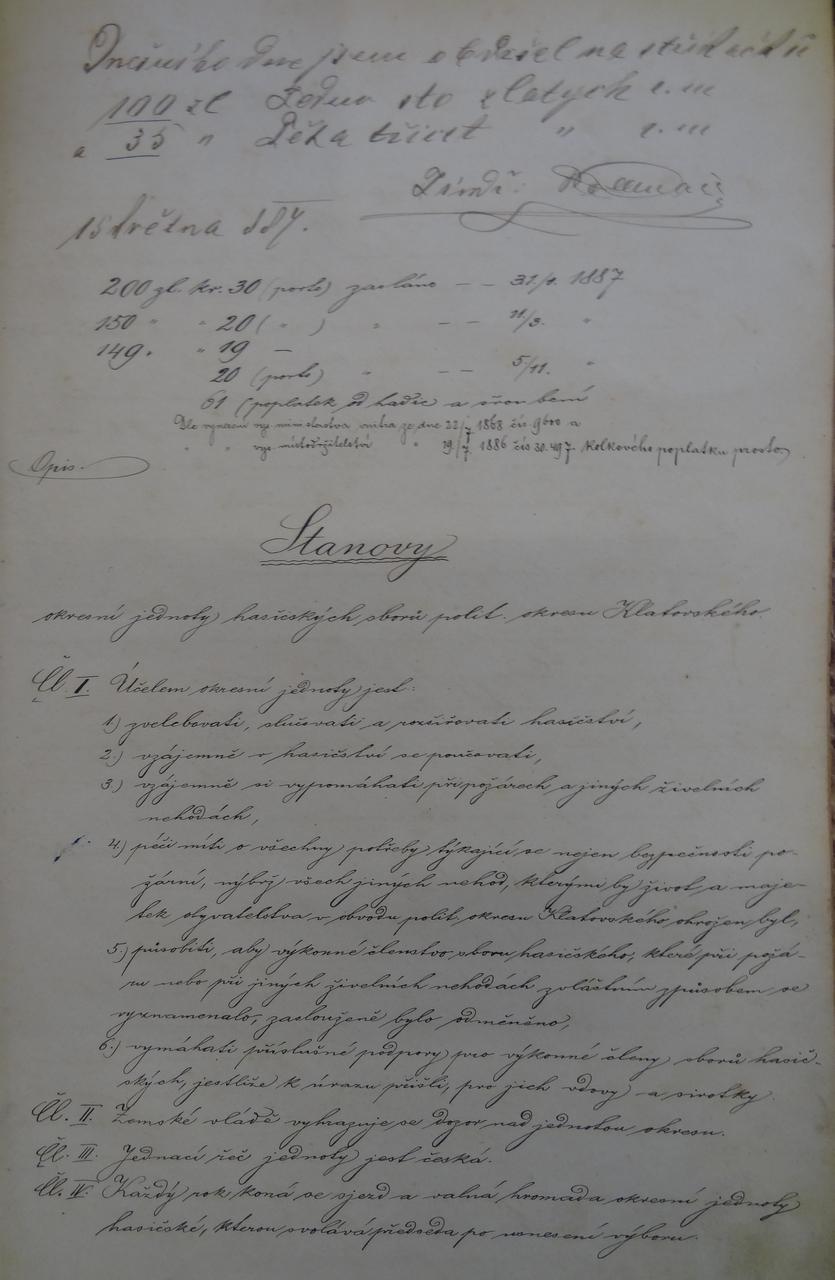 Dnešního dne jsem obdržel na
100 zl Jedno sto zlatých r. m
a 35 " Pěta třicet " r. m
15 května 887.
200 zl. kr. 30 (porto) zasláno – – 31/1. 1887
150 " " 20 ( " ) " – – 11/3. "
149. " 19 –
20 (porto) " – – 5/11. "
61 (poplatek od hadic a šroubení
Dle vynesení vys. ministerstva vnitra ze dne 22/7 1868 čís. 9600 a
" " vys. místodržitelství " 19/7. 1886 čís 30.497 kolkového poplatku prosto
Opis.
Stanovy
okresní jednoty hasičských sborů polit. okresu Klatovského.
Čl. I. Účelem okresní jednoty jest:
1) zvelebovati, slučovati a rozšiřovati hasičství,
2.) vzájemně v hasičství se poučovati,
3.) vzájemně si vypomáhati při požárech a jiných živelních
nehodách,
4.) péči míti o všechny potřeby týkající se nejen bezpečnosti po-
žární, nýbrž všech jiných nehod, kterými by život a maje-
tek obyvatelstva v obvodu polit. okresu Klatovského ohrožen byl,
5.) působiti, aby výkonné členstvo sboru hasičského, které při požá-
ru nebo při jiných živelních nehodách zvláštním způsobem se
vyznamenalo, zaslouženě bylo odměněno,
6.) vymáhati příslušné podpory pro výkonné členy sborů hasič-
ských, jestliže k úrazu přišli, pro jich vdovy a sirotky.
Čl. II. Zemské vládě vyhrazuje se dozor nad jednotou okresu.
Čl. III. Jednací řeč jednoty jest česká.
Čl. IV. Každý rok koná se sjezd a valná hromada okresní jednoty
hasičské, kterou svolává předseda po usnesení výboru.